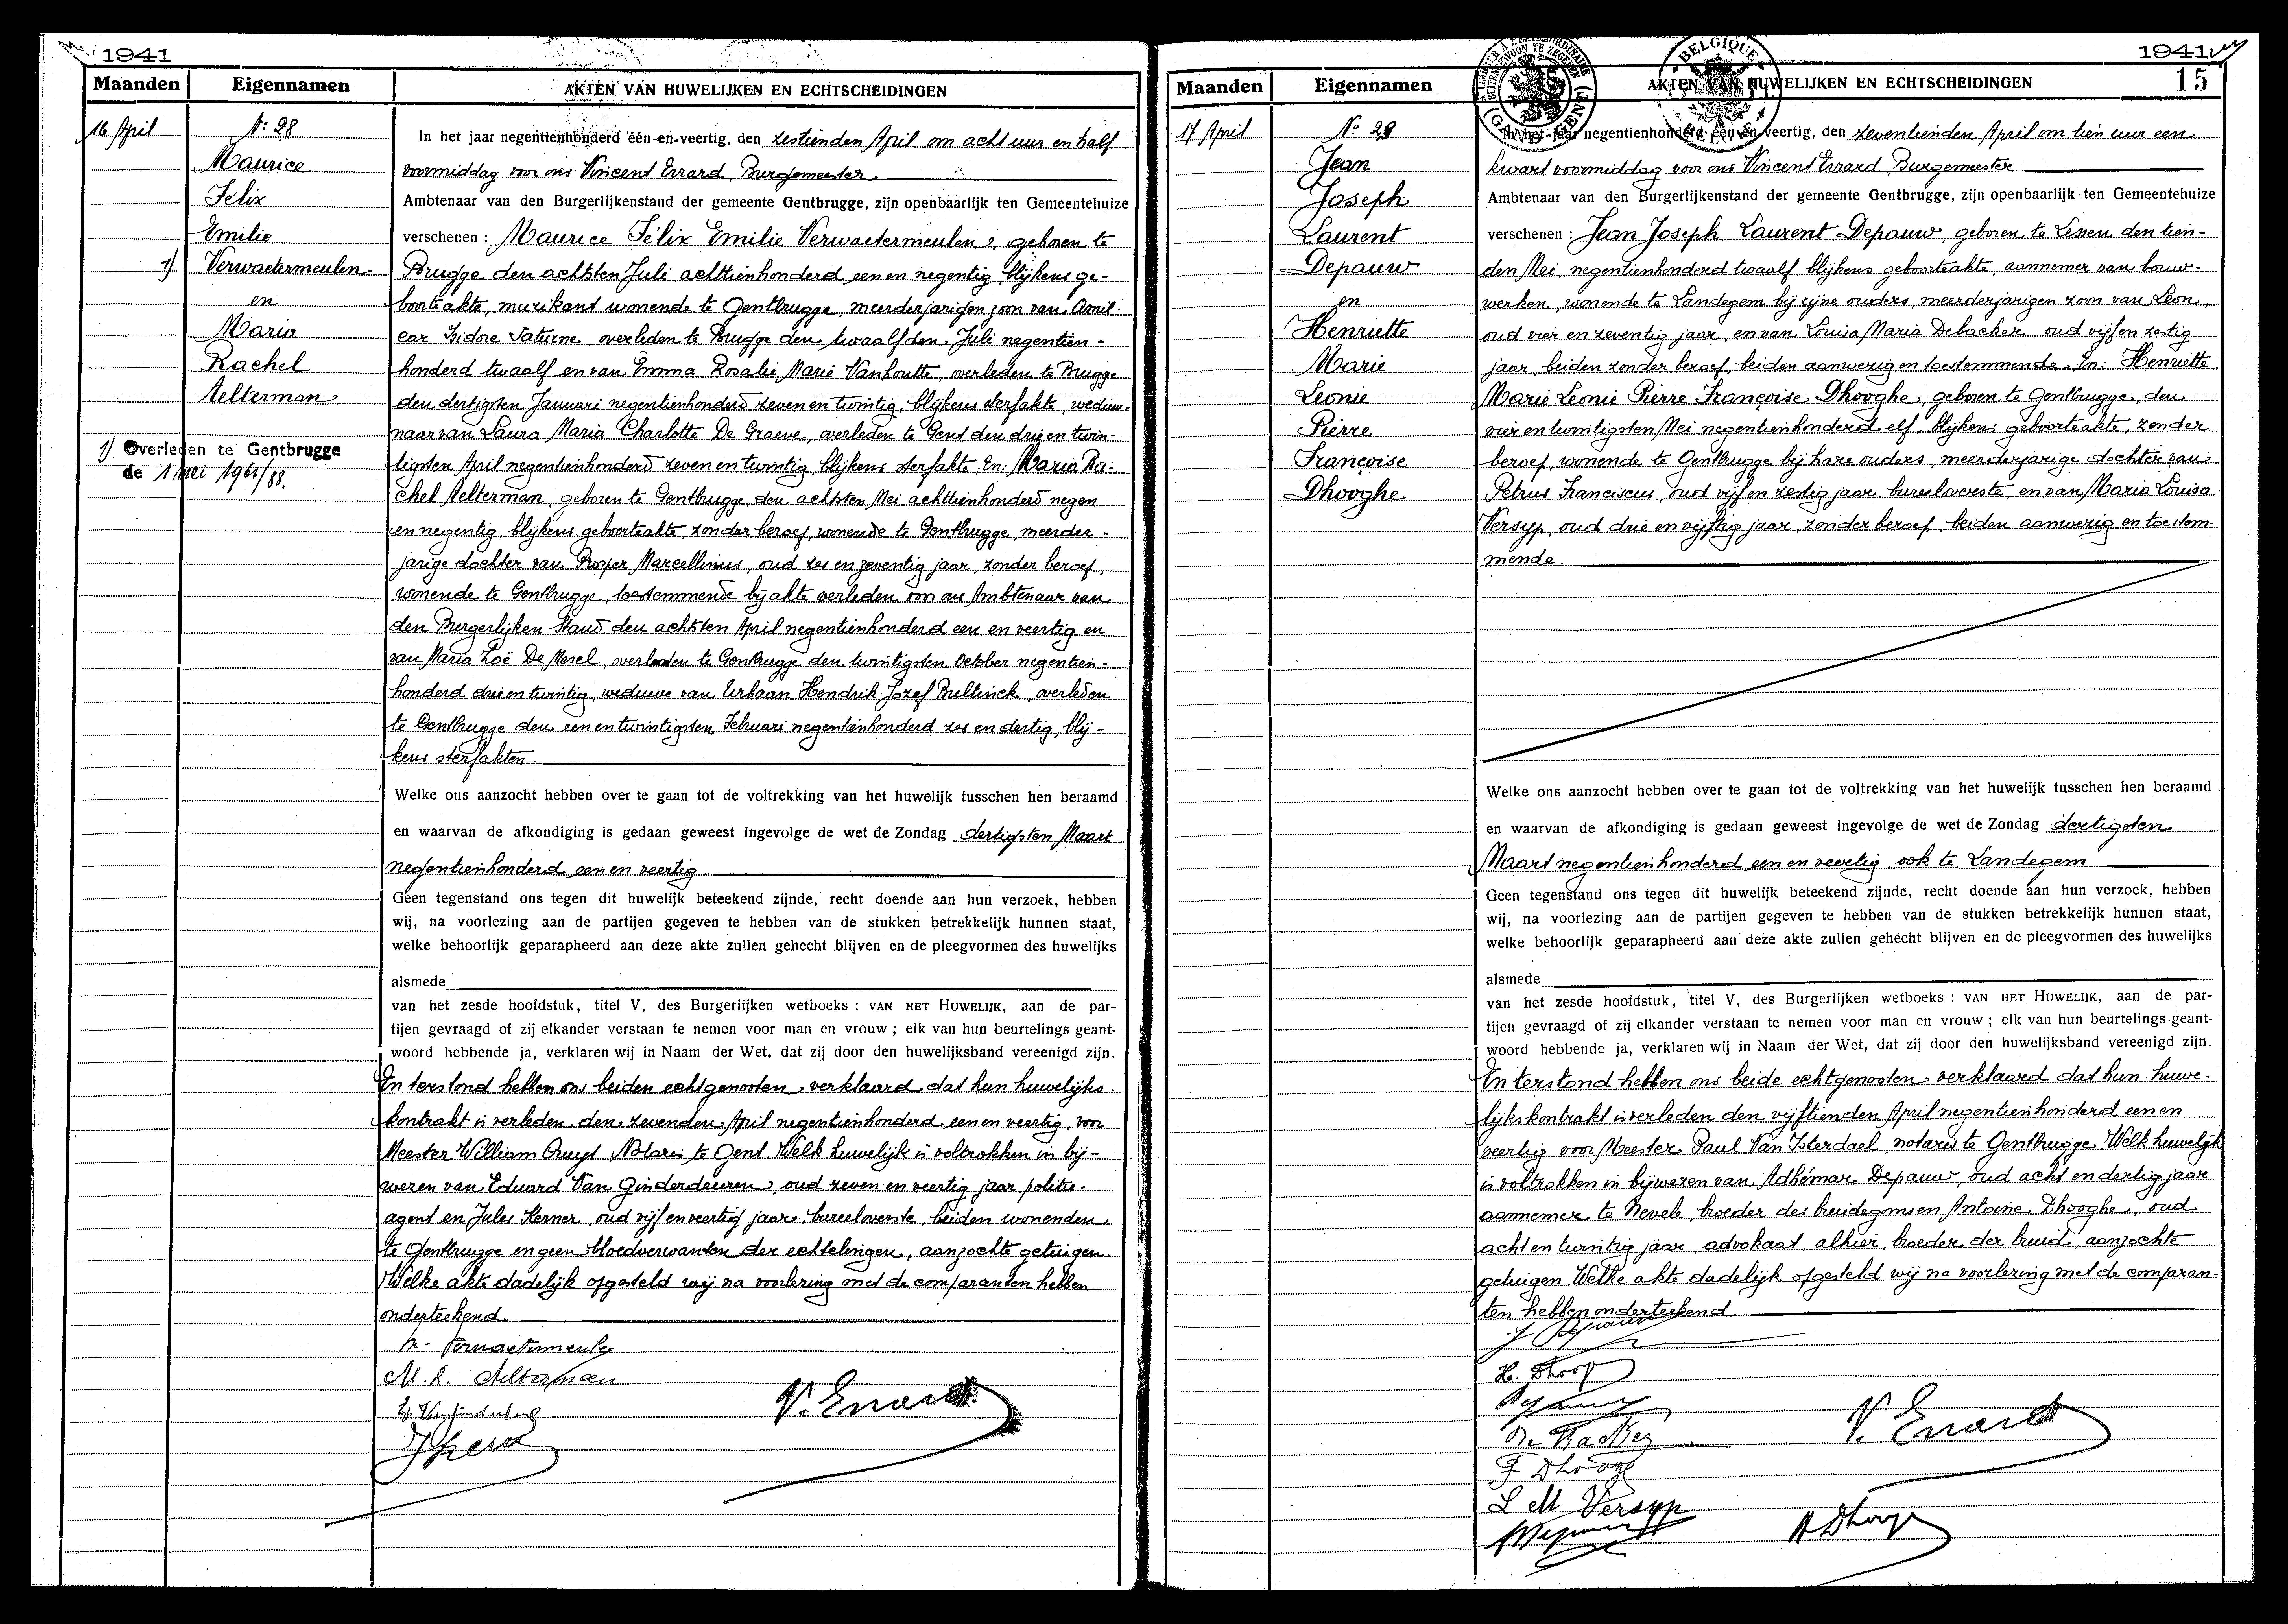 1941
Maanden
Eigennamen
AKTEN VAN HUWELIJKEN EN ECHTSCHEIDINGEN
16 April
N: 28
Maurice
Félix
Emilie
1) Verwaetermeulen
en
Maria
Rachel
Aelterman
1) Overleden te Gentbrugge
de 1 mei 1968/88.
In het jaar negentienhonderd één-en-veertig, den zestienden April om acht uur en half
voormiddag voor ons Vincent Errard, Burgemeester
Ambtenaar van den Burgerlijkenstand der gemeente Gentbrugge, zijn openbaarlijk ten Gemeentehuize
verschenen : Maurice Félix Emilie Verwaetermeulen, geboren te
Brugge den achtsten Juli achttienhonderd een en negentig, blijkens ge-
boorteakte, muzikant wonende te Gentbrugge, meerderjarigen zoon van Amil-
car Isidore Saturne, overleden te Brugge den twaalfden Juli negentien-
honderd twaalf en van Emma Rosalie Marie Vanhoutte, overleden te Brugge
den dertigsten Januari negentienhonderd zeven en twintig, blijkens sterfakte, weduw-
naar van Laura Maria Charlotte De Graeve, overleden te Gent den drie en twin-
tigsten April negentienhonderd zeven en twintig, blijkens sterfakte. En: Maria Ra-
chel Aelterman, geboren te Gentbrugge, den achtsten Mei achttienhonderd negen
en negentig, blijkens geboorteakte, zonder beroep, wonende te Gentbrugge, meerder-
jarige dochter van Prosper Marcellinus, oud zes en zeventig jaar, zonder beroep,
wonende te Gentbrugge, toestemmende bij akte verleden voor ons Ambtenaar van
den Burgerlijken Stand den achtsten April negentienhonderd een en veertig en
van Maria Zoë De Mesel, overleden te Gentbrugge den twintigsten October negentien-
honderd drie en twintig, weduwe van Urbaan Hendrik Jozef Bultinck, overleden
te Gentbrugge den een en twintigsten Februari negentienhonderd zes en dertig, blij-
kens sterfakten.
Welke ons aanzocht hebben over te gaan tot de voltrekking van het huwelijk tusschen hen beraamd
en waarvan de afkondiging is gedaan geweest ingevolge de wet de Zondag dertigsten Maart
negentienhonderd een en veertig
Geen tegenstand ons tegen dit huwelijk beteekend zijnde, recht doende aan hun verzoek, hebben
wij, na voorlezing aan de partijen gegeven te hebben van de stukken betrekkelijk hunnen staat,
welke behoorlijk geparapheerd aan deze akte zullen gehecht blijven en de pleegvormen des huwelijks
alsmede
van het zesde hoofdstuk, titel V, des Burgerlijken wetboeks : VAN HET HUWELIJK, aan de par-
tijen gevraagd of zij elkander verstaan te nemen voor man en vrouw ; elk van hun beurtelings geant-
woord hebbende ja, verklaren wij in Naam der Wet, dat zij door den huwelijksband vereenigd zijn.
En terstond hebben ons beiden echtgenooten verklaard dat hun huwelijks-
kontrakt is verleden den zevenden April negentienhonderd een en veertig, voor
Meester William Cruyt Notaris te Gent Welk huwelijk is voltrokken in bij-
wezen van Eduard Van Ginderdeuren, oud zeven en veertig jaar, politie-
agent en Jules Sterner, oud vijf en veertig jaar, bureeloverste, beiden wonenden
te Gentbrugge en geen bloedverwanten der echtelingen, aanzochte getuigen.
Welke akte dadelijk opgesteld wij na voorlezing met de comparanten hebben
onderteekend.
M. R. Aelterman
V. Errard
1941
15
Maanden
Eigennamen
AKTEN VAN HUWELIJKEN EN ECHTSCHEIDINGEN
BELGIQUE
17 April
N: 29
Jean
Joseph
Laurent
Depauw
en
Henriette
Marie
Leonie
Pierre
Françoise
Dhooghe
In het jaar negentienhonderd één-en-veertig, den zeventienden April om tien uur een
kwart voormiddag voor ons Vincent Errard, Burgemeester
Ambtenaar van den Burgerlijkenstand der gemeente Gentbrugge, zijn openbaarlijk ten Gemeentehuize
verschenen : Jean Joseph Laurent Depauw, geboren te Lessen den tien-
den Mei negentienhonderd twaalf blijkens geboorteakte, aannemer van bouw-
werken, wonende te Landegem bij zijne ouders, meerderjarigen zoon van Leon,
oud vier en zeventig jaar, en van Louisa Maria Debacker, oud vijf en zestig
jaar, beiden zonder beroep, beiden aanwezig en toestemmende. En: Henriette
Marie Leonie Pierre Françoise Dhooghe, geboren te Gentbrugge, den
vier en twintigsten Mei negentienhonderd elf, blijkens geboorteakte, zonder
beroep, wonende te Gentbrugge bij hare ouders, meerderjarige dochter van
Petrus Franciscus, oud vijf en zestig jaar, bureeloverste, en van Maria Louisa
Versyp, oud drie en vijftig jaar, zonder beroep, beiden aanwezig en toestem-
mende.
Welke ons aanzocht hebben over te gaan tot de voltrekking van het huwelijk tusschen hen beraamd
en waarvan de afkondiging is gedaan geweest ingevolge de wet de Zondag dertigsten
Maart negentienhonderd een en veertig, ook te Landegem
Geen tegenstand ons tegen dit huwelijk beteekend zijnde, recht doende aan hun verzoek, hebben
wij, na voorlezing aan de partijen gegeven te hebben van de stukken betrekkelijk hunnen staat,
welke behoorlijk geparapheerd aan deze akte zullen gehecht blijven en de pleegvormen des huwelijks
alsmede
van het zesde hoofdstuk, titel V, des Burgerlijken wetboeks : VAN HET HUWELIJK, aan de par-
tijen gevraagd of zij elkander verstaan te nemen voor man en vrouw ; elk van hun beurtelings geant-
woord hebbende ja, verklaren wij in Naam der Wet, dat zij door den huwelijksband vereenigd zijn.
En terstond hebben ons beide echtgenooten verklaard dat hun huwe-
lijkskontrakt is verleden den vijftienden April negentienhonderd een en
veertig voor Meester Paul Van Isterdael, notaris te Gentbrugge. Welk huwelijk
is voltrokken in bijwezen van Adhémar Depauw, oud acht en dertig jaar
aannemer te Nevele, broeder des bruidegoms en Antoine Dhooghe, oud
acht en twintig jaar, advokaat, alhier, broeder der bruid, aanzochte
getuigen Welke akte dadelijk opgesteld wij na voorlezing met de comparan-
ten hebben onderteekend
J Depauw
H. Dhooge
De Backer
F Dhooge
L M Versyp
V. Errard
A Dhooge